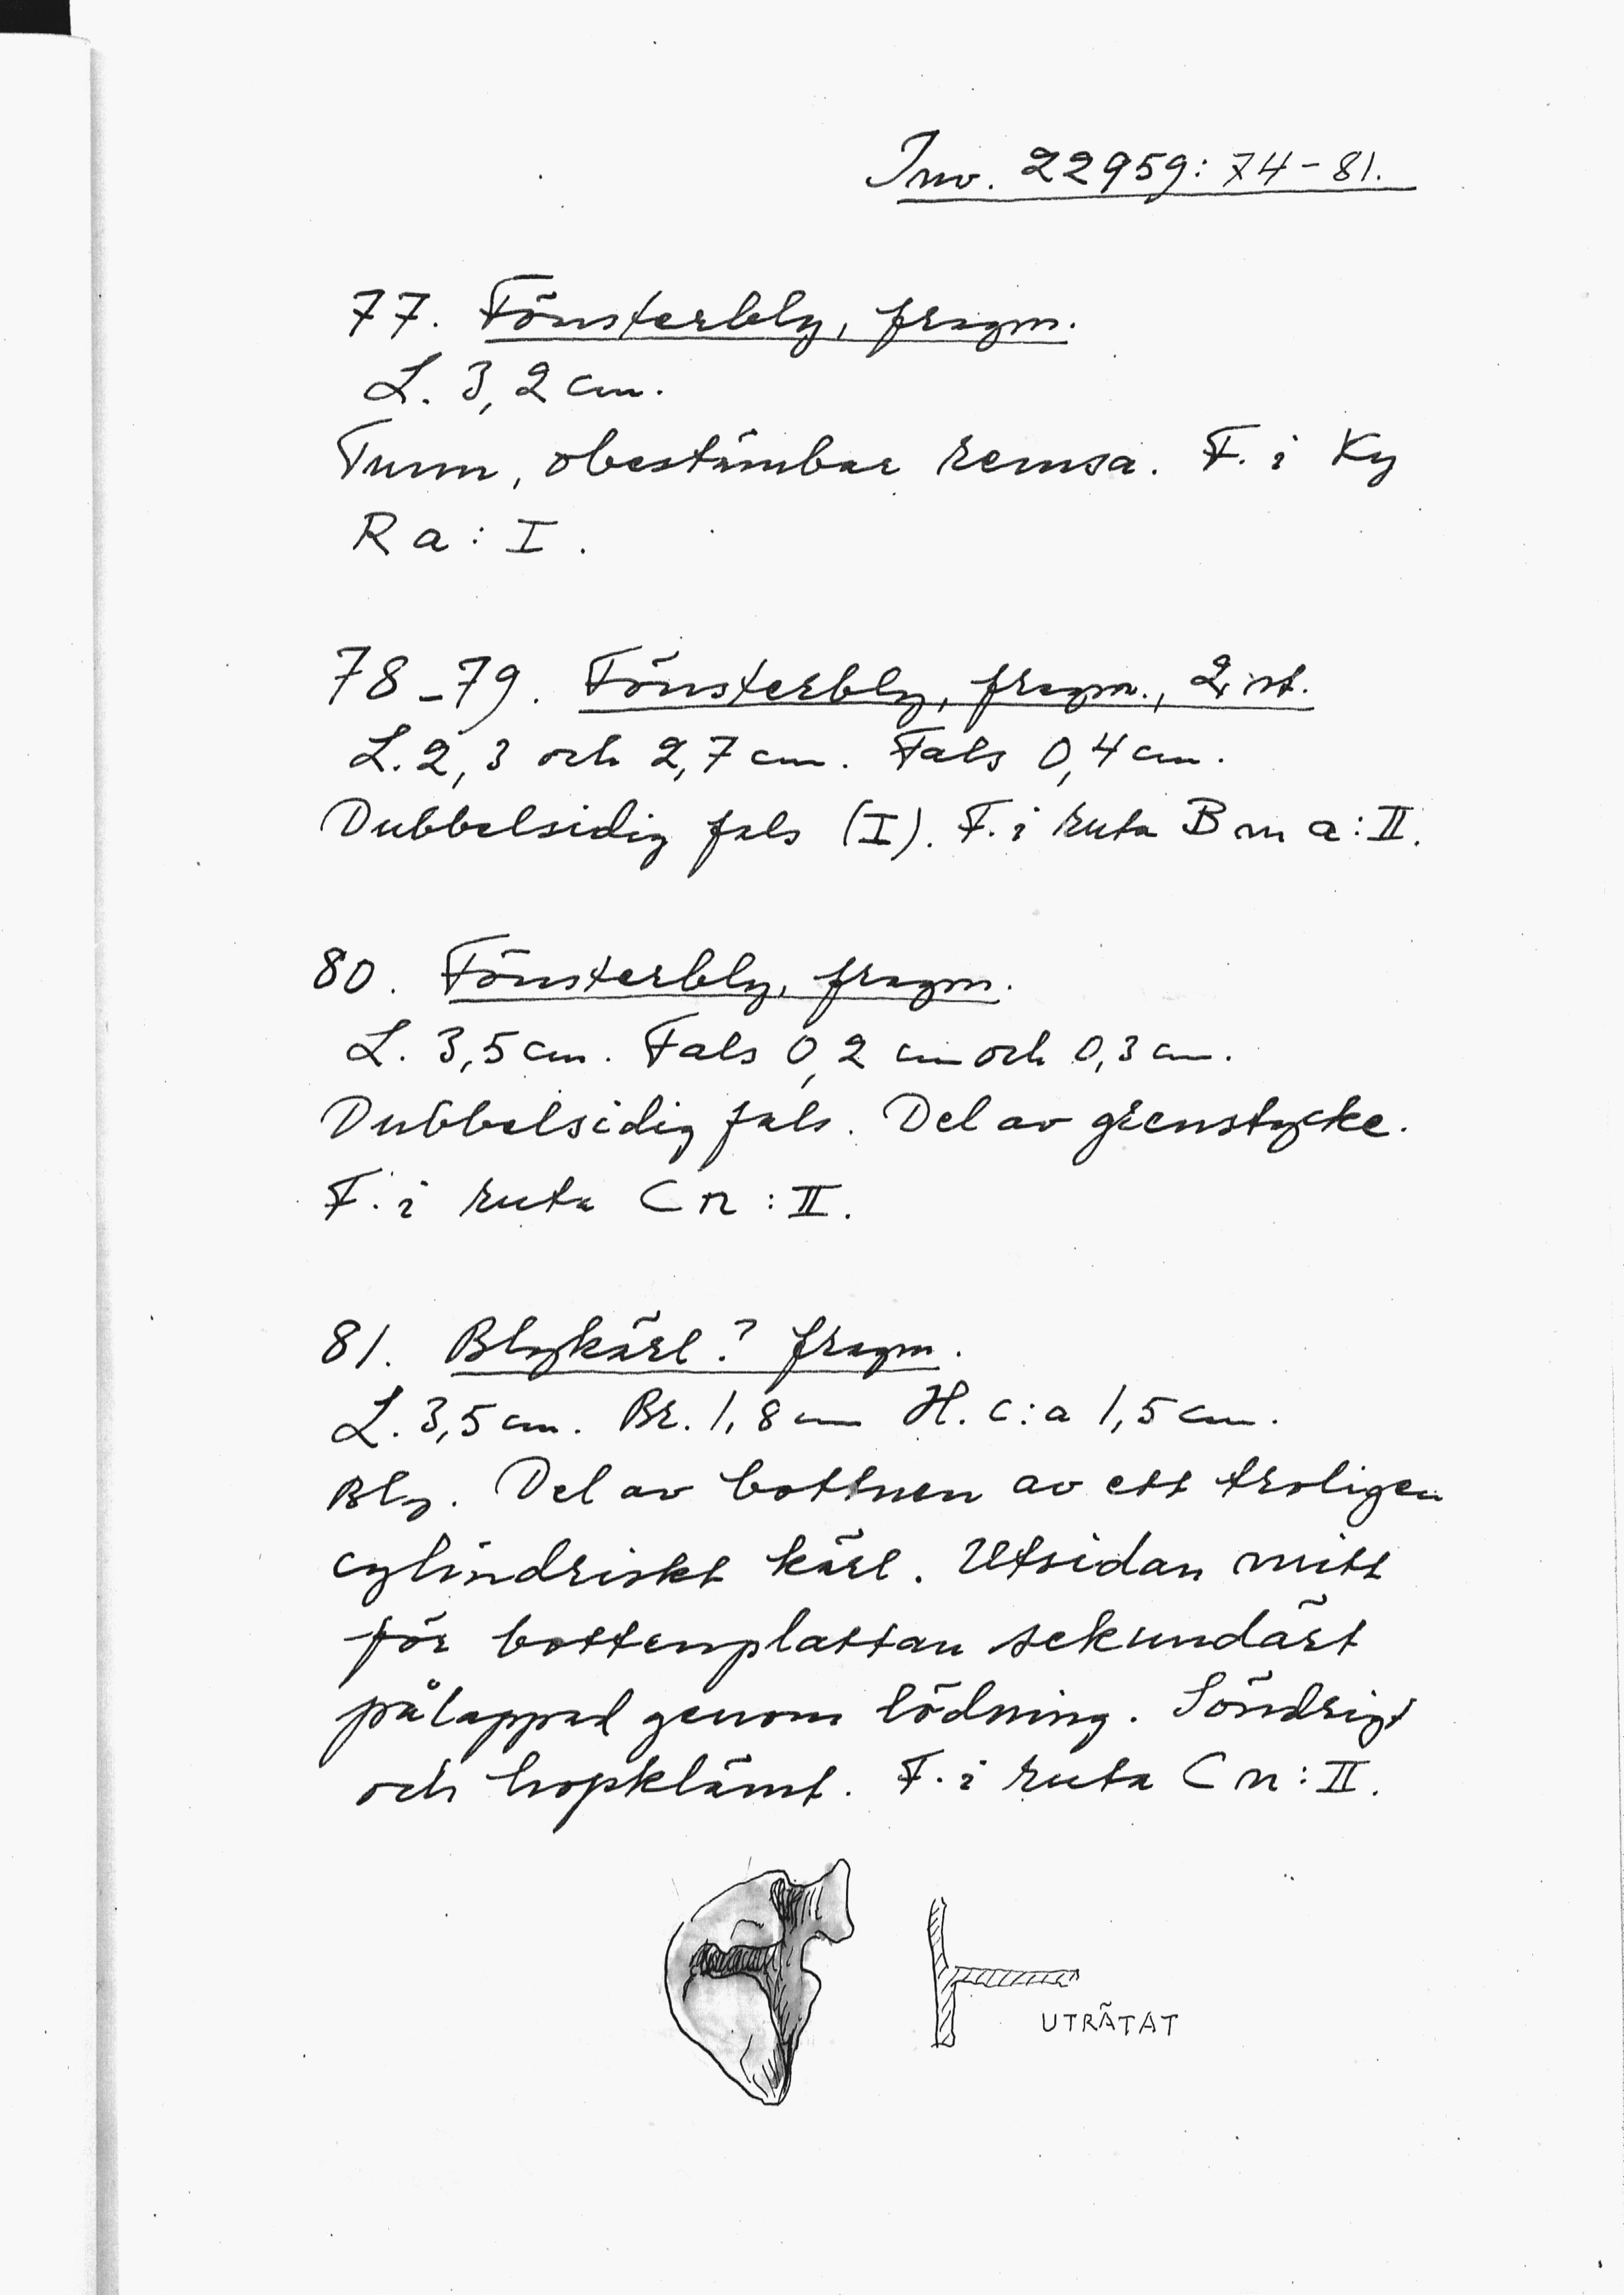 Inv. 22959:74-81.
77. Fönsterbly, fragm.
L. 3,2 cm.
Tunn, obestämbar remsa. F. i Ky
Ra: I.
78-79. Fönsterbly, fragm., 2 st.
L. 2,3 och 2,7 cm. Fals 0,4 cm.
Dubbelsidig fals (I). F. i ruta Bma:II.
80. Fönsterbly, fragm.
L. 3,5 cm. Fals 0,2 cm och 0,3 cm.
Dubbelsidig fals. Del av grenstycke.
F. i ruta Cn:II.
81. Blykärl? fragm.
L. 3,5 cm. Br. 1,8 cm H. c:a 1,5 cm.
Bly. Del av bottnen av ett troligen
cylindriskt kärl. Utsidan mitt
för bottenplattan sekundärt
pålappad genom lödning. Söndrigt
och hopklämt. F. i ruta Cn:II.
UTRÄTAT